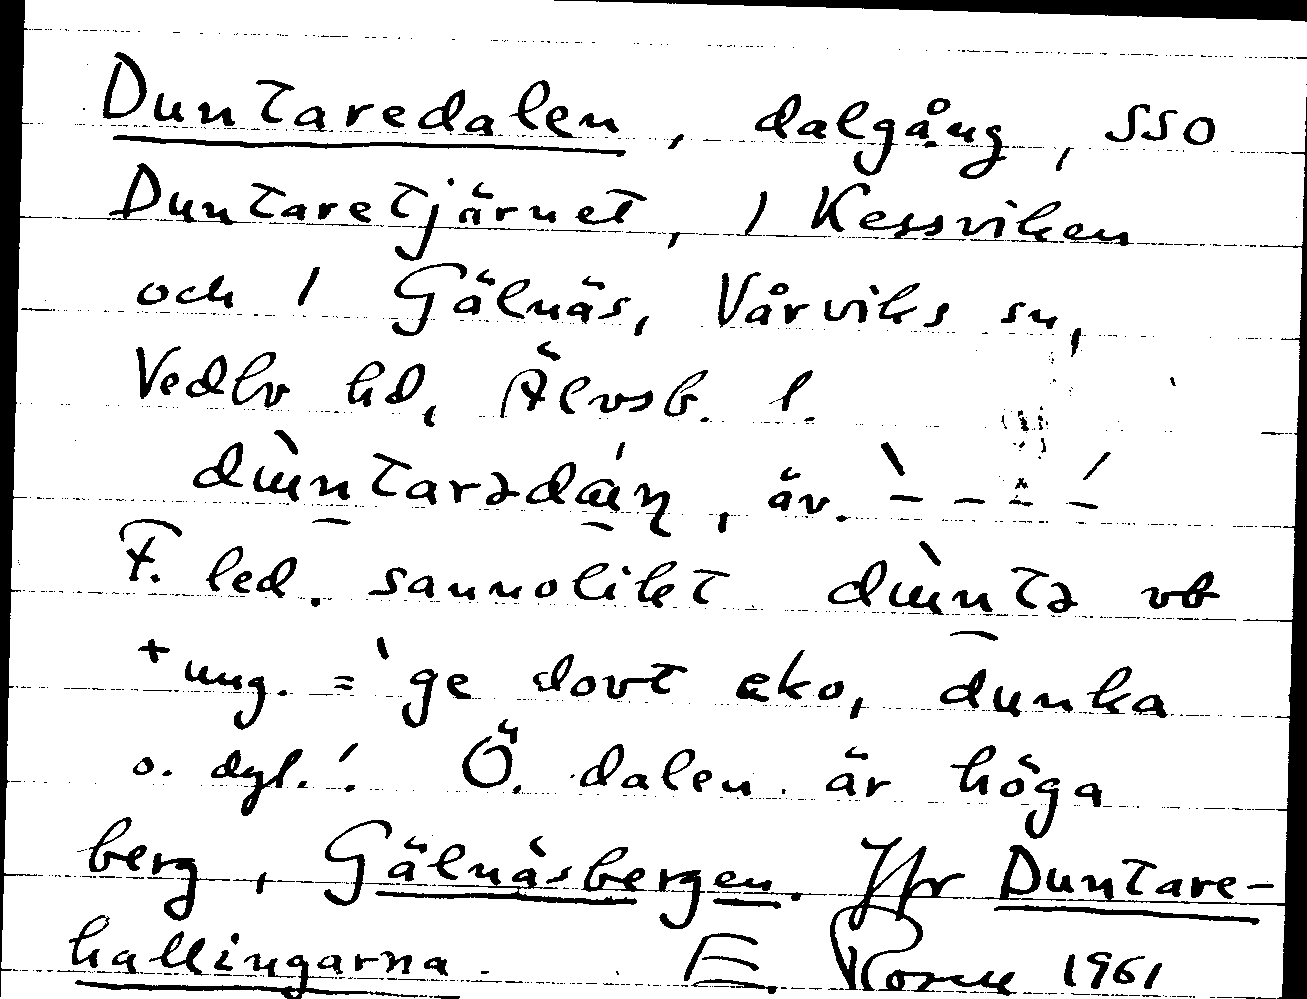 Duntaredalen, dalgång, SSO
Duntaretjärnet, 1 Kessviken
och 1 Gälnäs, Vårviks sn,
Vedbo hd, Älvsb. l.
dùntarədáɳ, äv. ` – – – ´
F. led. sannolikt dùntə vb
+ ung. = 'ge dovt eko, dunka
o. dgl.'. Ö. dalen är höga
berg, Gälnäsbergen. Jfr Duntare-
hallingarna. E. 1961